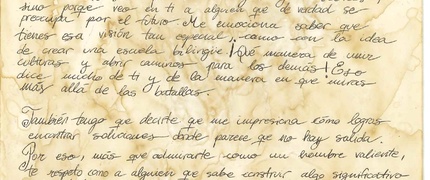 sino porque veo en ti a alguien que de verdad se
preocupa por el futuro. Me emociona saber que
tienes esa visión tan especial, como con la idea
de crear una escuela bilingüe ¡Qué manera de unir
culturas y abrir caminos para los demás! Eso
dice mucho de ti y de la manera en que miras
más allá de las batallas.
También tengo que decirte que me impresiona cómo logras
encontrar soluciones donde parece que no hay salida.
Por eso, más que admirarte como un hombre valiente,
te respeto como a alguien que sabe construir algo significativo